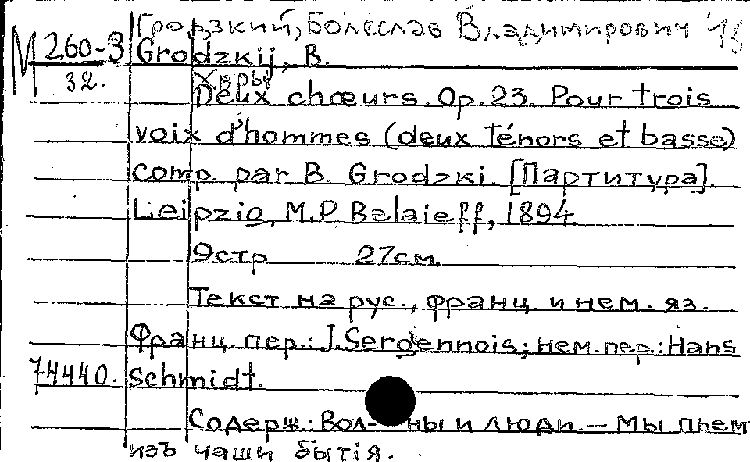 Гродзкий, Болеслав Владимирович
М 260-3
32.
Grodzkij, B.
Хоры
Deux chœurs. Op. 23. Pour trois
voix d'hommes (deux Ténors et basse)
comp. par B. Grodzki [Партитура].
Leipzig, M.P. Belaieff, 1894
9 стр 27 см.
Текст на рус., франц. и нем. яз.
Франц. пер.: J. Sergennois; нем. пер.: Hans
74440. Schmidt.
Содерж.: Вол-ны и люди. — Мы пьем
изъ чаши бытія.